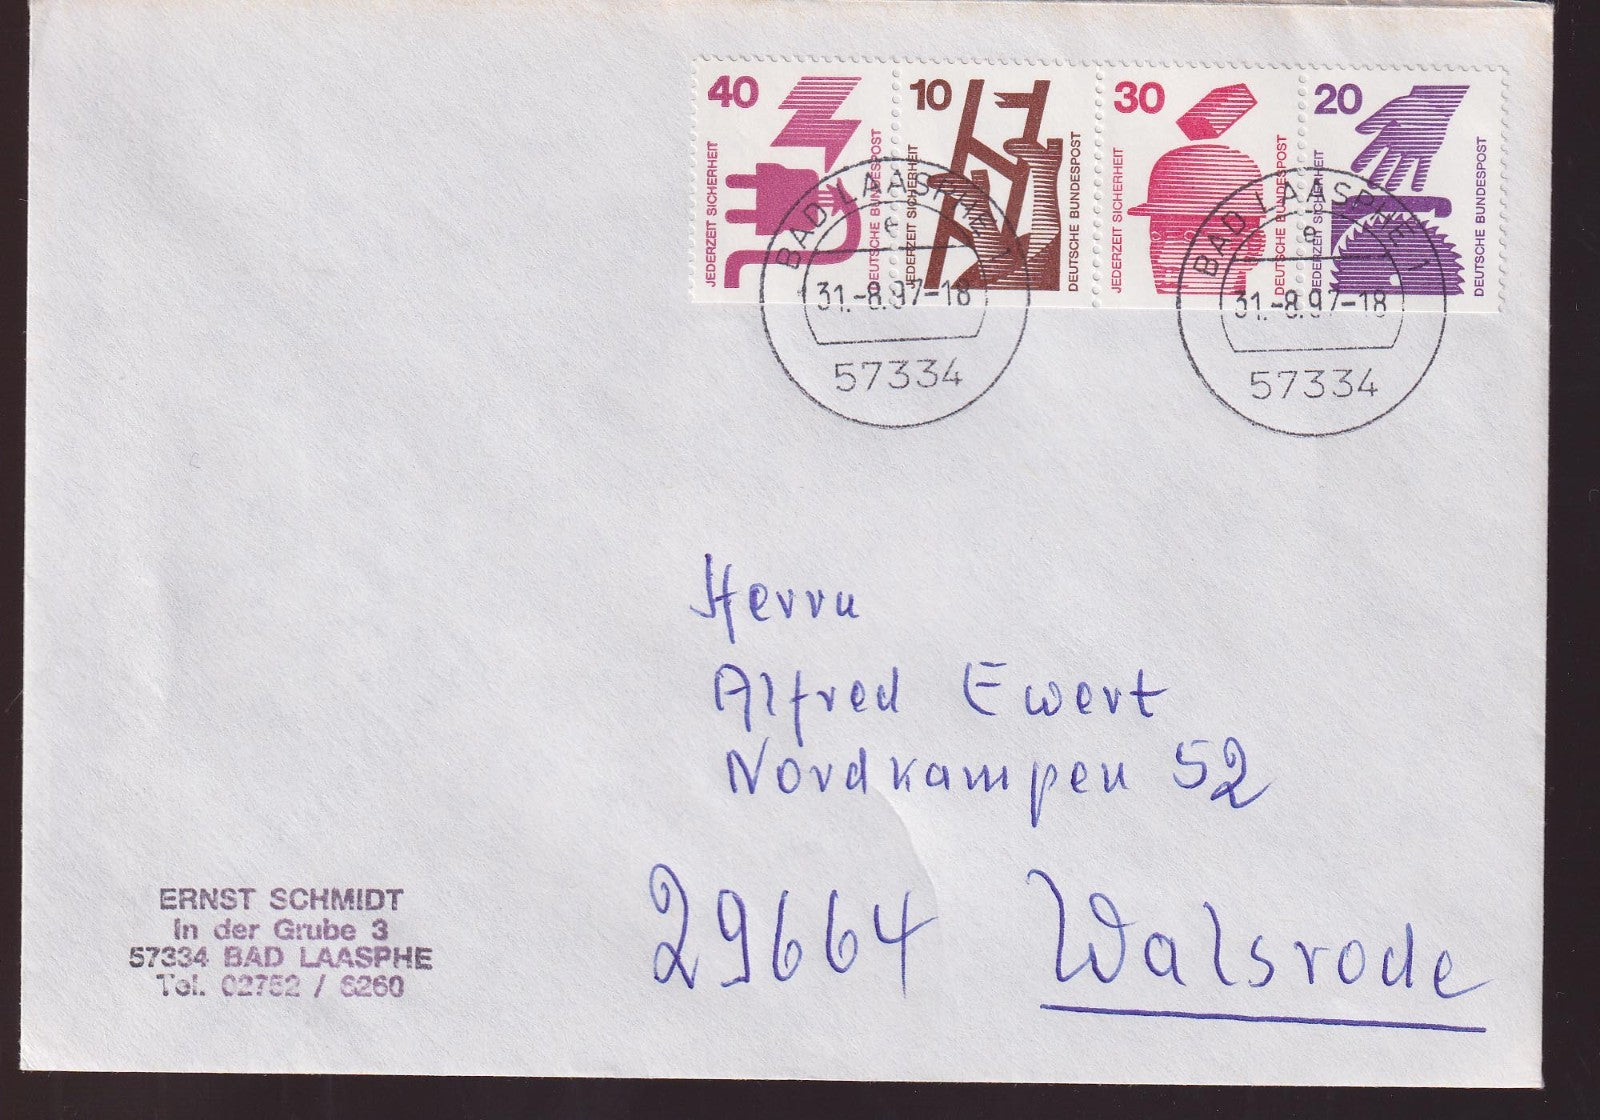 40
JEDERZEIT SICHERHEIT
DEUTSCHE BUNDESPOST
10
JEDERZEIT SICHERHEIT
DEUTSCHE BUNDESPOST
30
JEDERZEIT SICHERHEIT
DEUTSCHE BUNDESPOST
20
JEDERZEIT SICHERHEIT
DEUTSCHE BUNDESPOST
BAD LAASPHE 1
e
31.-8.97-18
57334
BAD LAASPHE 1
e
31.-8.97-18
57334
Herrn
Alfred Ewert
Nordkampen 52
29664 Walsrode
ERNST SCHMIDT
In der Grube 3
57334 BAD LAASPHE
Tel. 02752 / 6260